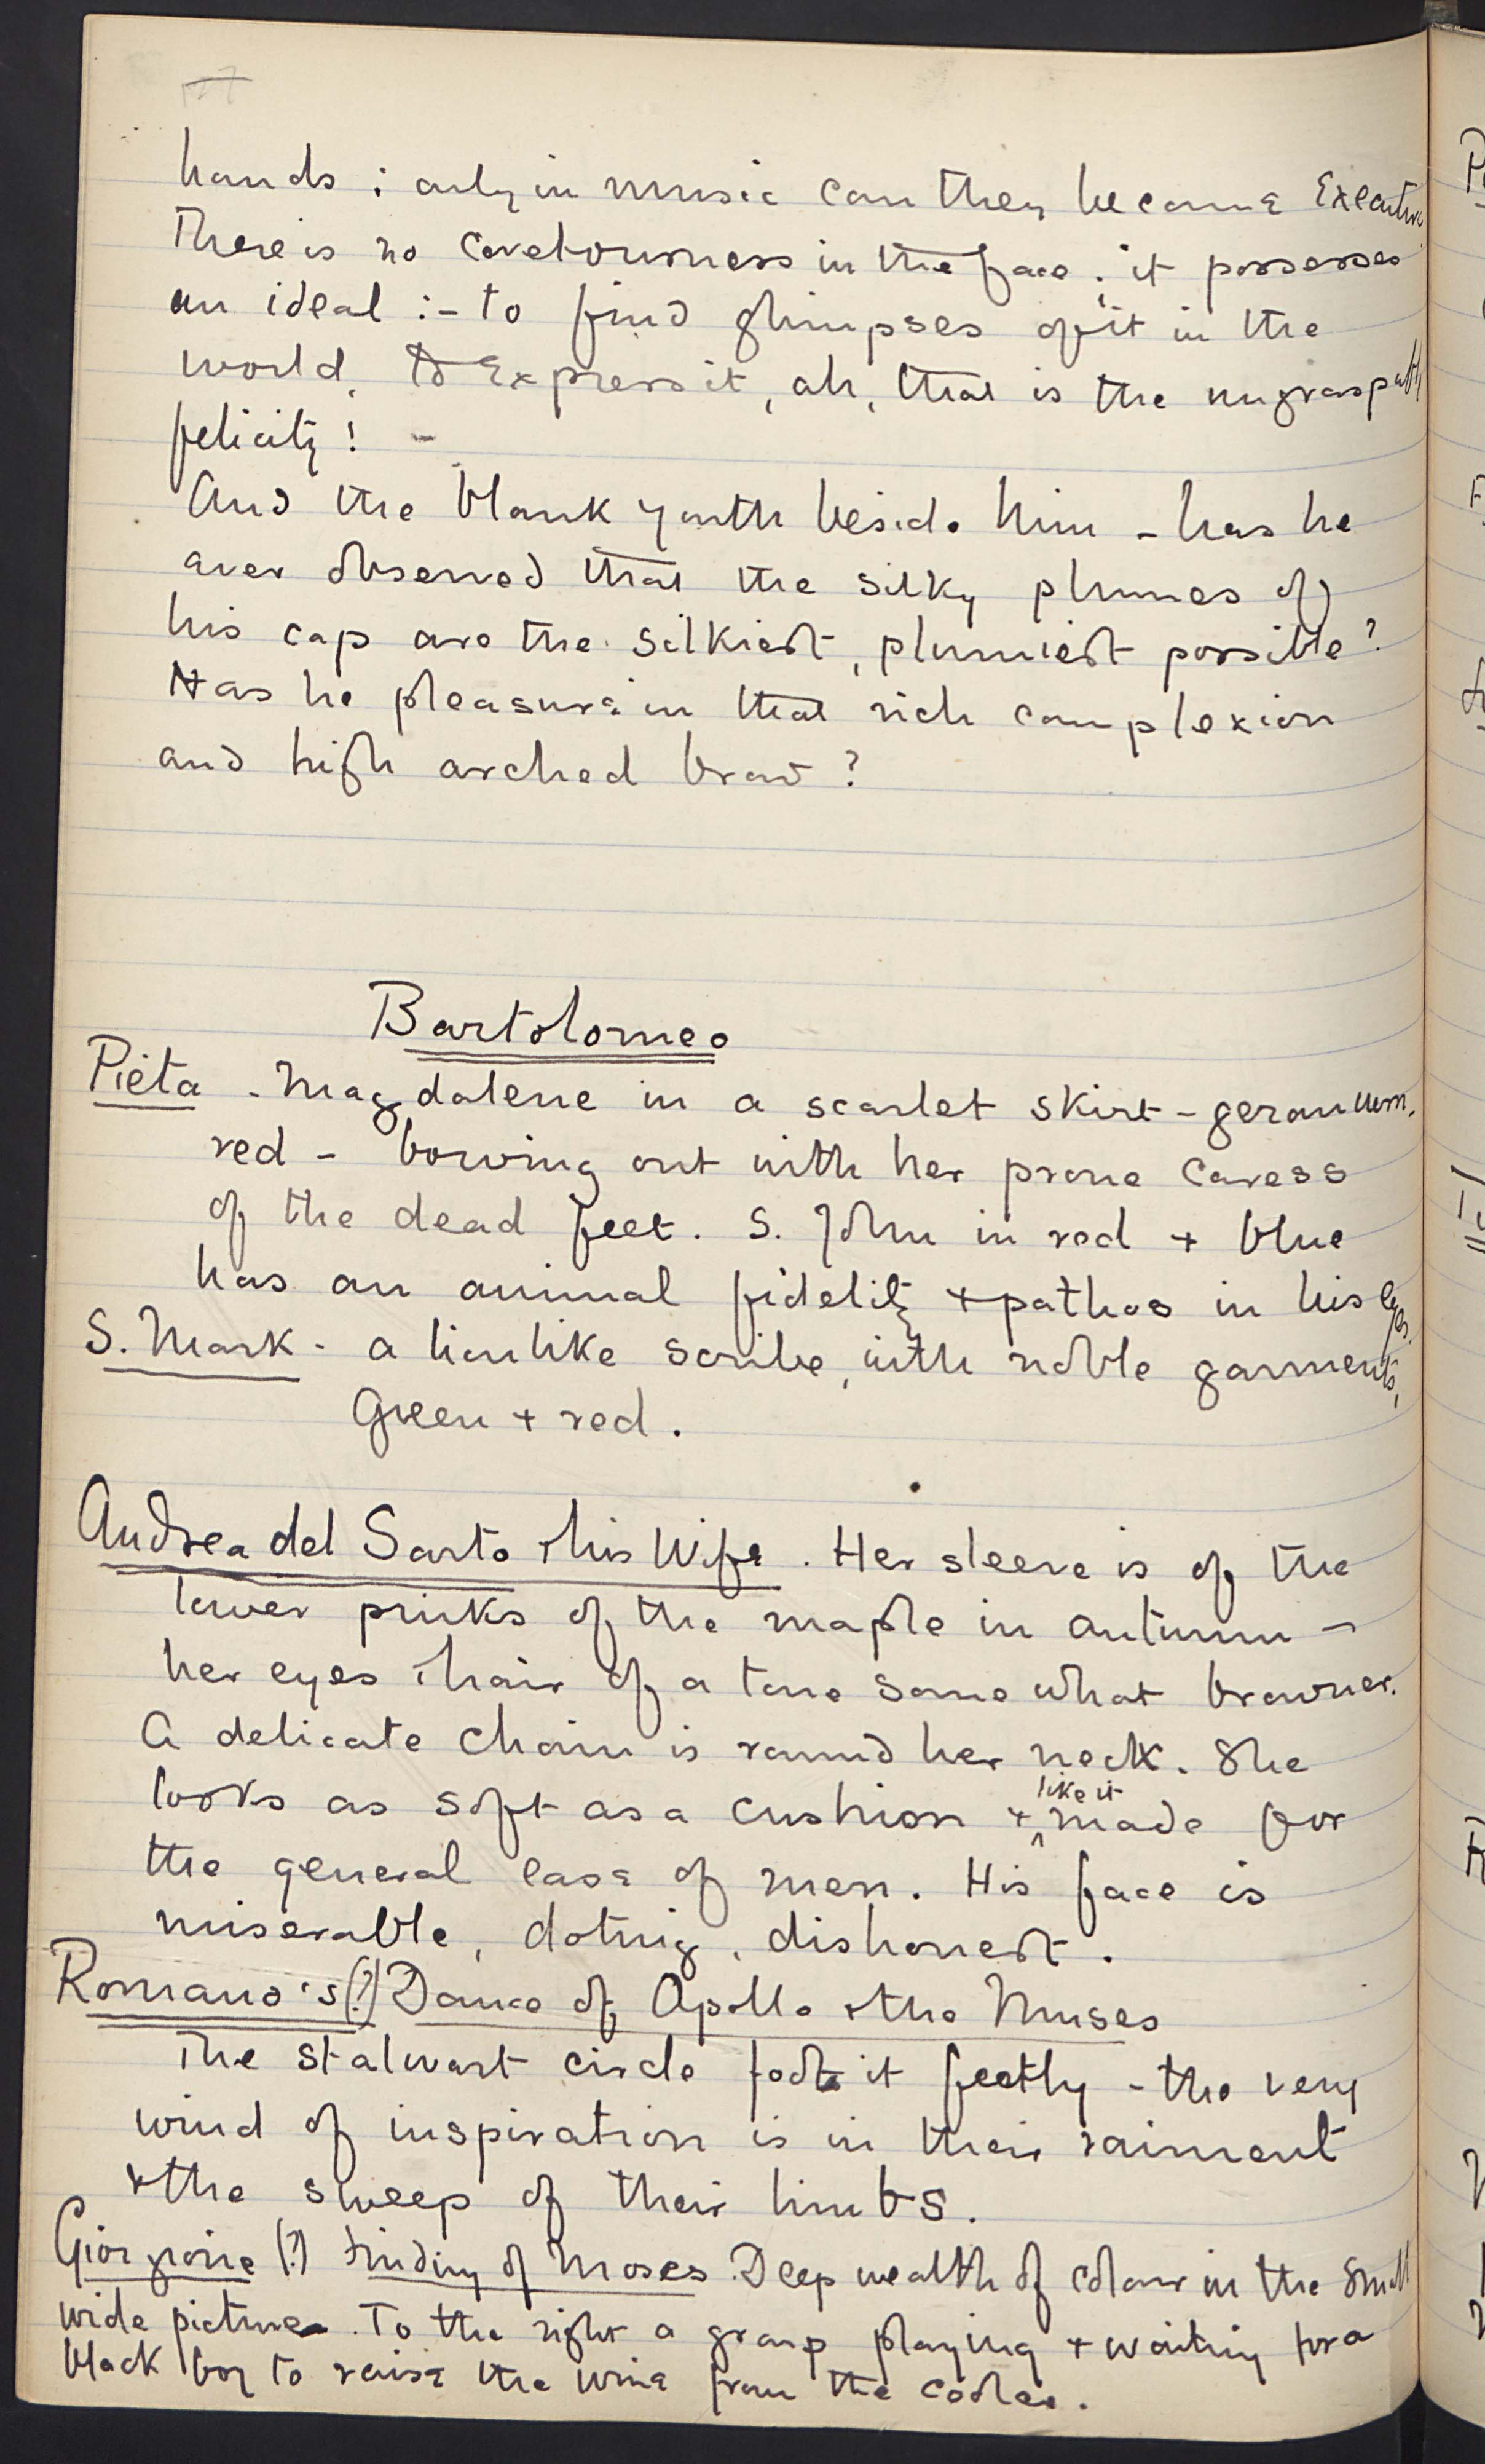 hands ; only in music can they become Executive
There is no covetousness in the face ; it possesses
an ideal :- to find glimpses of it in the
world, to Express it, ah, that is the ungraspable
felicity! -
And the blank youth beside him - has he
ever observed that the silky plumes of
his cap are the silkiest, plumiest possible?
Has he pleasure in that rich complexion
and high arched brow?
Bartolomeo
Pieta - Magdalene in a scarlet skirt - geranium.
red - bowing out with her prone caress
of the dead feet. S. John in red + blue
has an animal fidelity + pathos in his eyes.
S. Mark - a lionlike scribe, with noble garments,
Green + red.
Andrea del Sarto + his Wife. Her sleeve is of the
lower pinks of the maple in autumn -
her eyes + hair of a tone some what browner.
A delicate chain is round her neck. She
looks as soft as a cushion + like it made for
the general ease of men. His face is
miserable, doting, dishonest.
Romano's (?) Dance of Apollo + the Muses
The stalwart circle foot it featly - the very
wind of inspiration is in their raiment
+ the sweep of their limbs.
Giorgione (?) Finding of Moses Deep wealth of colour in the small
wide picture. To the right a group playing + waiting for a
black boy to raise the wine from the cooler.